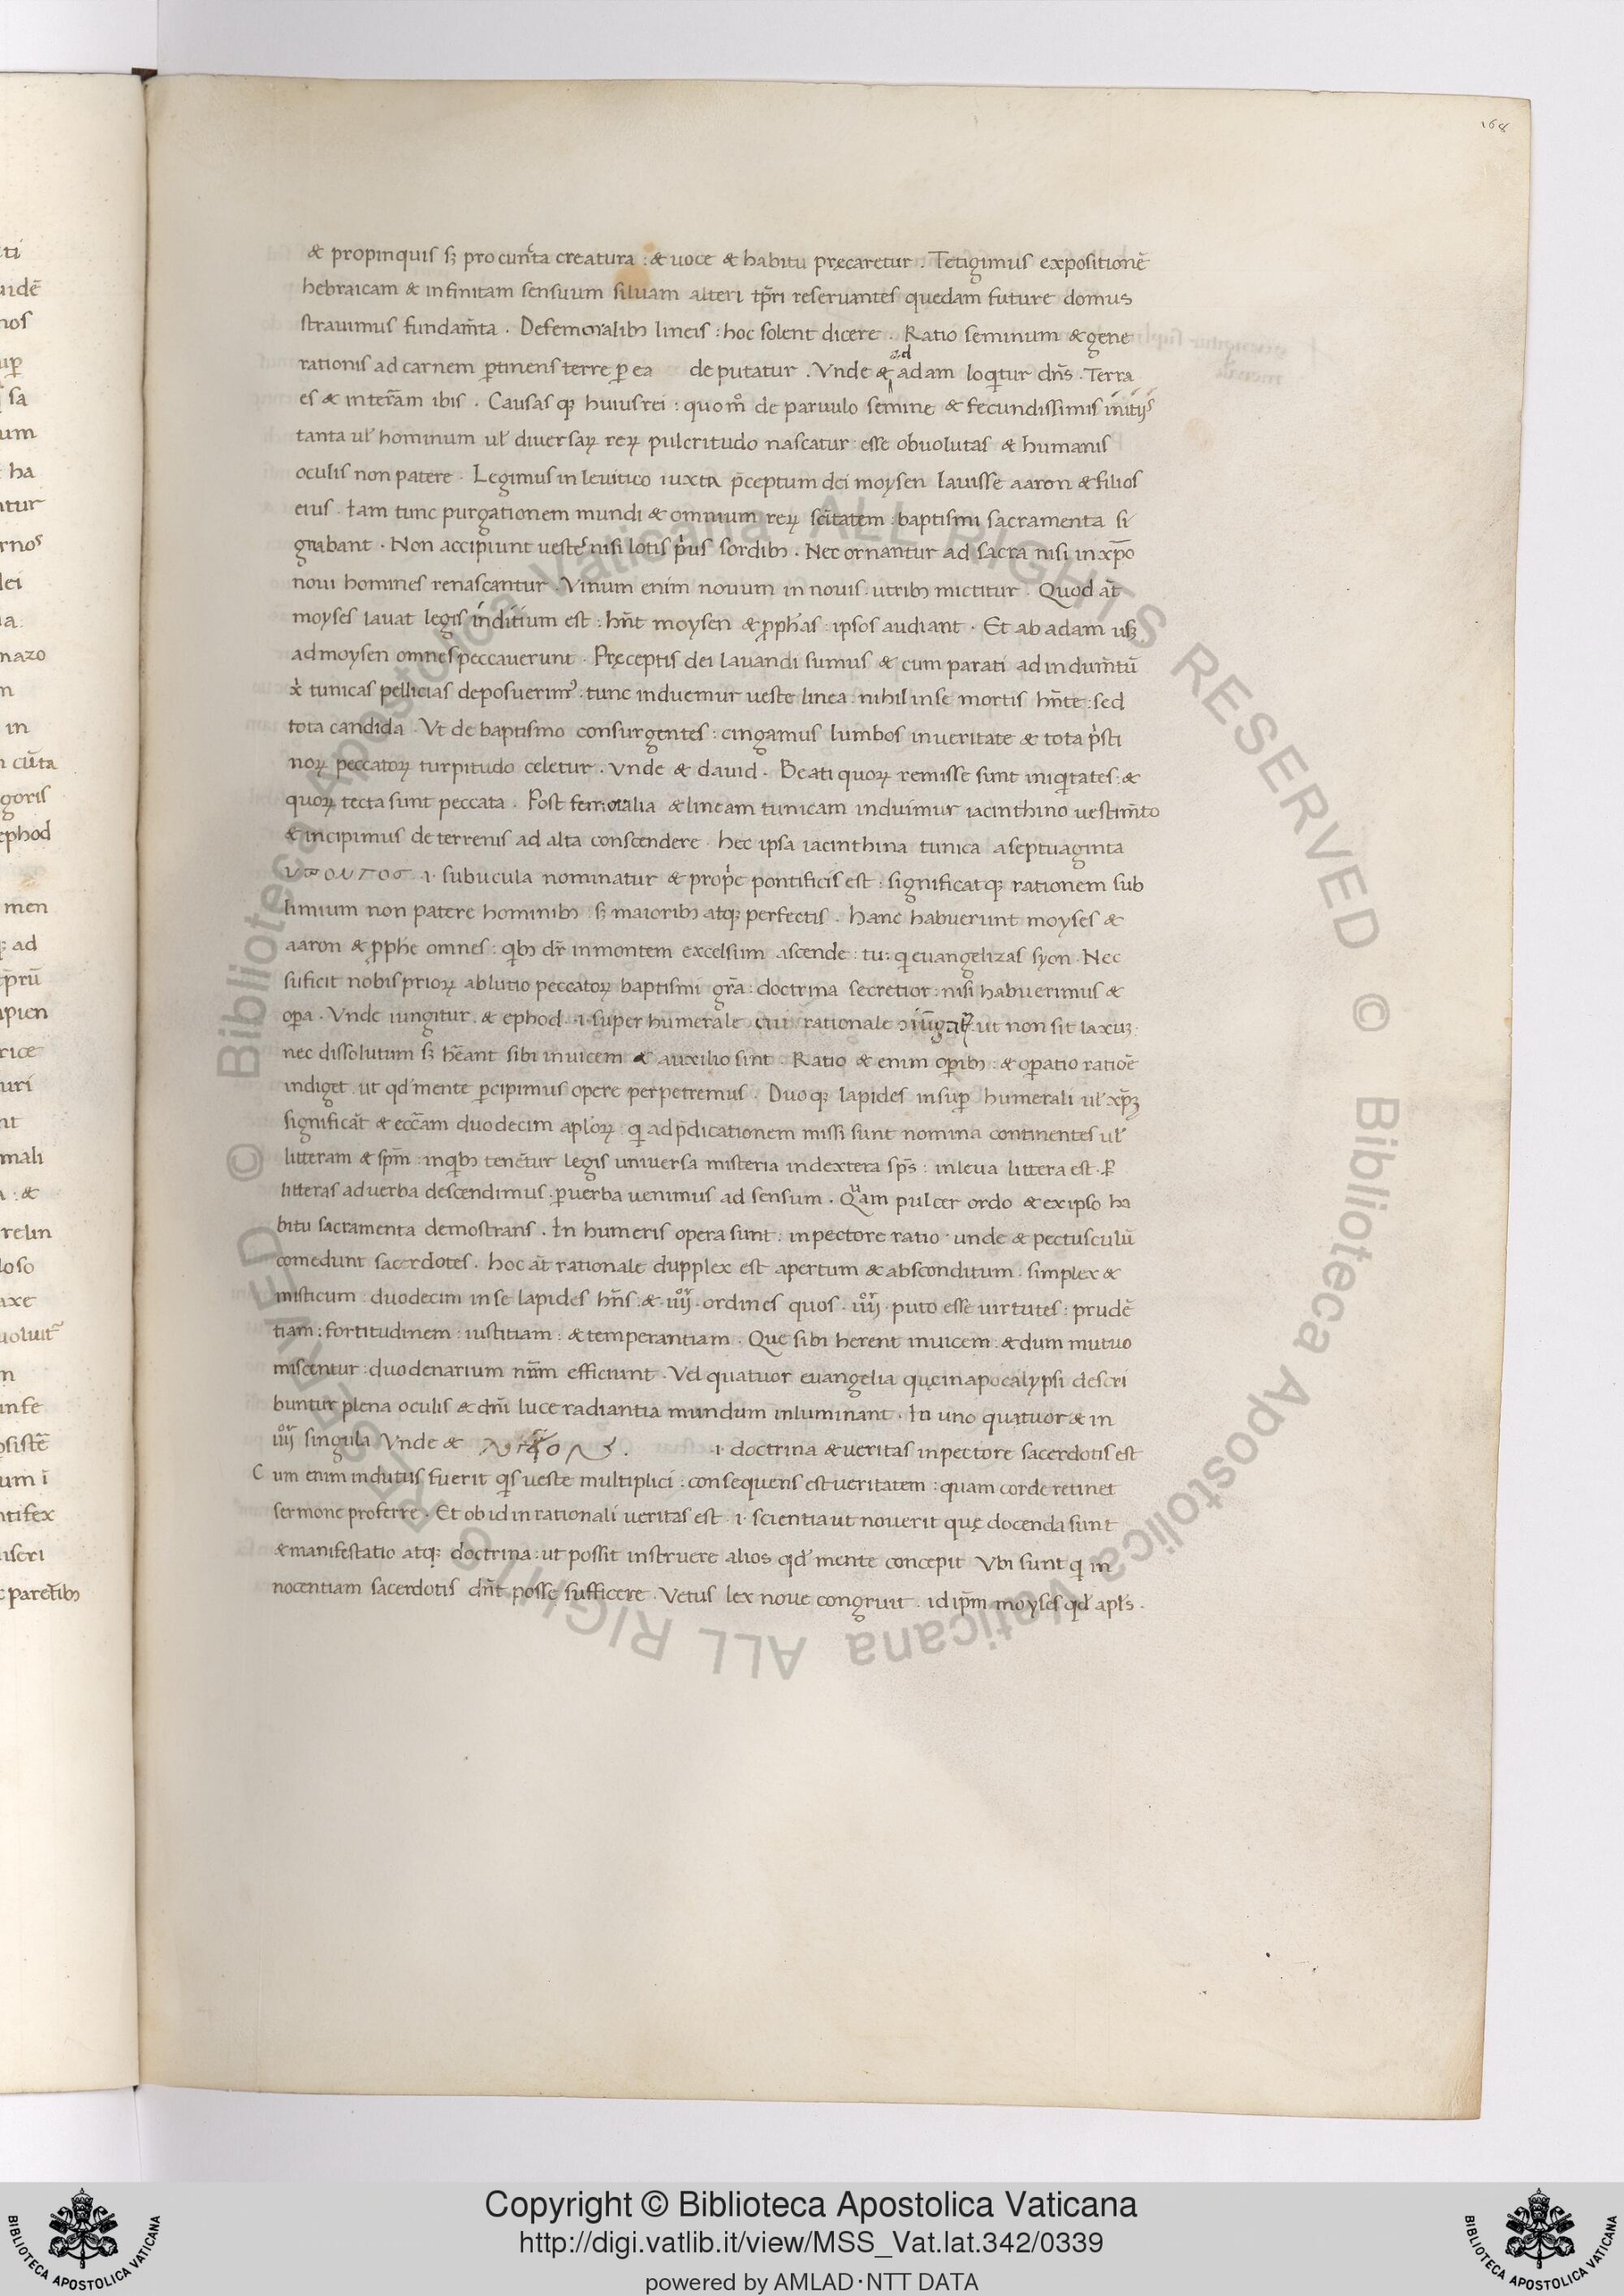 168
& propinquis sꝫ pro cun̄ta creatura : & uoce & habitu pręcaretur . Tetigimus expositionē
hebraicam & infinitam sensuum siluam alteri tp̄ri reseruantes quedam future domus
strauimus fundam̄ta . Defemoralibꝫ lineis : hoc solent dicere . Ratio seminum & gene
rationis ad carnem ꝑtinens terre ꝑ ea deputatur . Vnde & ad adam loq̇tur dn̄s . Terra
es & in terr̄am ibis . Causas qꝫ huius rei : quom̊ de paruulo semine & fecundissimis initijs
tanta ul' hominum ul' diuersaꝝ reꝝ pulcritudo nascatur : esse obuolutas & humanis
oculis non patere . Legimus in leuitico iuxta p̄ceptum dei moysen lauisse aaron & filios
eius . Iam tunc purgationem mundi & omnium reꝝ sc̄itatem : baptismi sacramenta si
gnabant . Non accipiunt uestes nisi lotis pⁱus sordibꝫ . Nec ornantur ad sacra nisi in xp̄o
noui homines renascantur . Vinum enim nouum in nouis utribꝫ mictitur . Quod āt
moyses lauat legis inditium est : hn̄t moysen & ꝓphas : ipsos audiant . Et ab adam usqꝫ
ad moysen omnes peccauerunt . Pręceptis dei lauandi sumus & cum parati ad indum̄tū
xⁱ tunicas pellicias deposuerimꝰ : tunc induemur ueste linea : nihil in se mortis hn̄te : sed
tota candida . Vt de baptismo consurgentes : cingamus lumbos in ueritate & tota pⁱsti
noꝝ peccatoꝝ turpitudo celetur . Vnde & dauid . Beati quoꝝ remisse sunt iniq̇tates : &
quoꝝ tecta sunt peccata . Post femoralia & lineam tunicam induimur iacinthino uestim̄to
& incipimus de terrenis ad alta conscendere . hec ipsa iacinthina tunica a septuaginta
.i. subucula nominatur & propⁱe pontificis est : significatqꝫ rationem sub
limium non patere hominibꝫ : sꝫ maioribꝫ atqꝫ perfectis . hanc habuerunt moyses &
aaron & ꝓphe omnes : qⁱbꝫ dr̄ in montem excelsum ascende : tu : qⁱ euangelizas syon . Nec
suficit nobis prioꝝ ablutio peccatoꝝ baptismi gr̄a : doctrina secretior : nisi habuerimus &
oꝑa . Vnde iungitur & ephod .i. super humerale cui rationale ut non sit laxuꝫ
nec dissolutum sꝫ hēant sibi inuicem & auxilio sint . Ratio & enim oꝑibꝫ : & oꝑatio ratiōe
indiget ut qd' mente ꝑcipimus opere perpetremus . Duoqꝫ lapides in suꝑ humerali ul' xp̄ꝫ
significāt & ecc̄am duodecim apl'oꝝ : qⁱ ad p̄dicationem missi sunt nomina continentes ul'
litteram & sp̄m : in qⁱbꝫ tenētur legis uniuersa misteria in dextera sp̄s : in leua littera est . ꝑ
litteras ad uerba descendimus . ꝑ uerba uenimus ad sensum . Quam pulcer ordo & ex ipso ha
bitu sacramenta demostrans . In humeris opera sunt : in pectore ratio . unde & pectusculū
comedunt sacerdotes . hoc āt rationale dupplex est apertum & absconditum . simplex &
misticum : duodecim in se lapides hn̄s : & .iiijor. ordines quos .iiijor. puto esse uirtutes : prudē
tiam : fortitudinem : iustitiam : & temperantiam . Que sibi herent inuicem : & dum mutuo
miscentur : duodenarium nūm efficiunt . Vel quatuor euangelia quę in apocalypsi descri
buntur plena oculis & dn̄i luce radiantia mundum inluminant . In uno quatuor & in
iiijor singula Vnde & .i. doctrina & ueritas in pectore sacerdotis est
C um enim indutus fuerit qⁱs ueste multiplici : consequens est ueritatem : quam corde retinet
sermone proferre . Et ob id in rationali ueritas est .i. scientia ut nouerit quę docenda sunt
& manifestatio atqꝫ doctrina : ut possit instruere alios qd' mente concepit Vbi sunt qⁱ in
nocentiam sacerdotis dn̄t posse sufficere . Vetus lex noue congruit . id ip̄m moyses qd' apl's .
Copyright © Biblioteca Apostolica Vaticana
http://digi.vatlib.it/view/MSS_Vat.lat.342/0339
powered by AMLAD·NTT DATA
BIBLIOTECA APOSTOLICA VATICANA
BIBLIOTECA APOSTOLICA VATICANA
© Biblioteca Apostolica Vaticana ALL RIGHTS RESERVED © Biblioteca Apostolica Vaticana ALL RIGHTS RESERVED